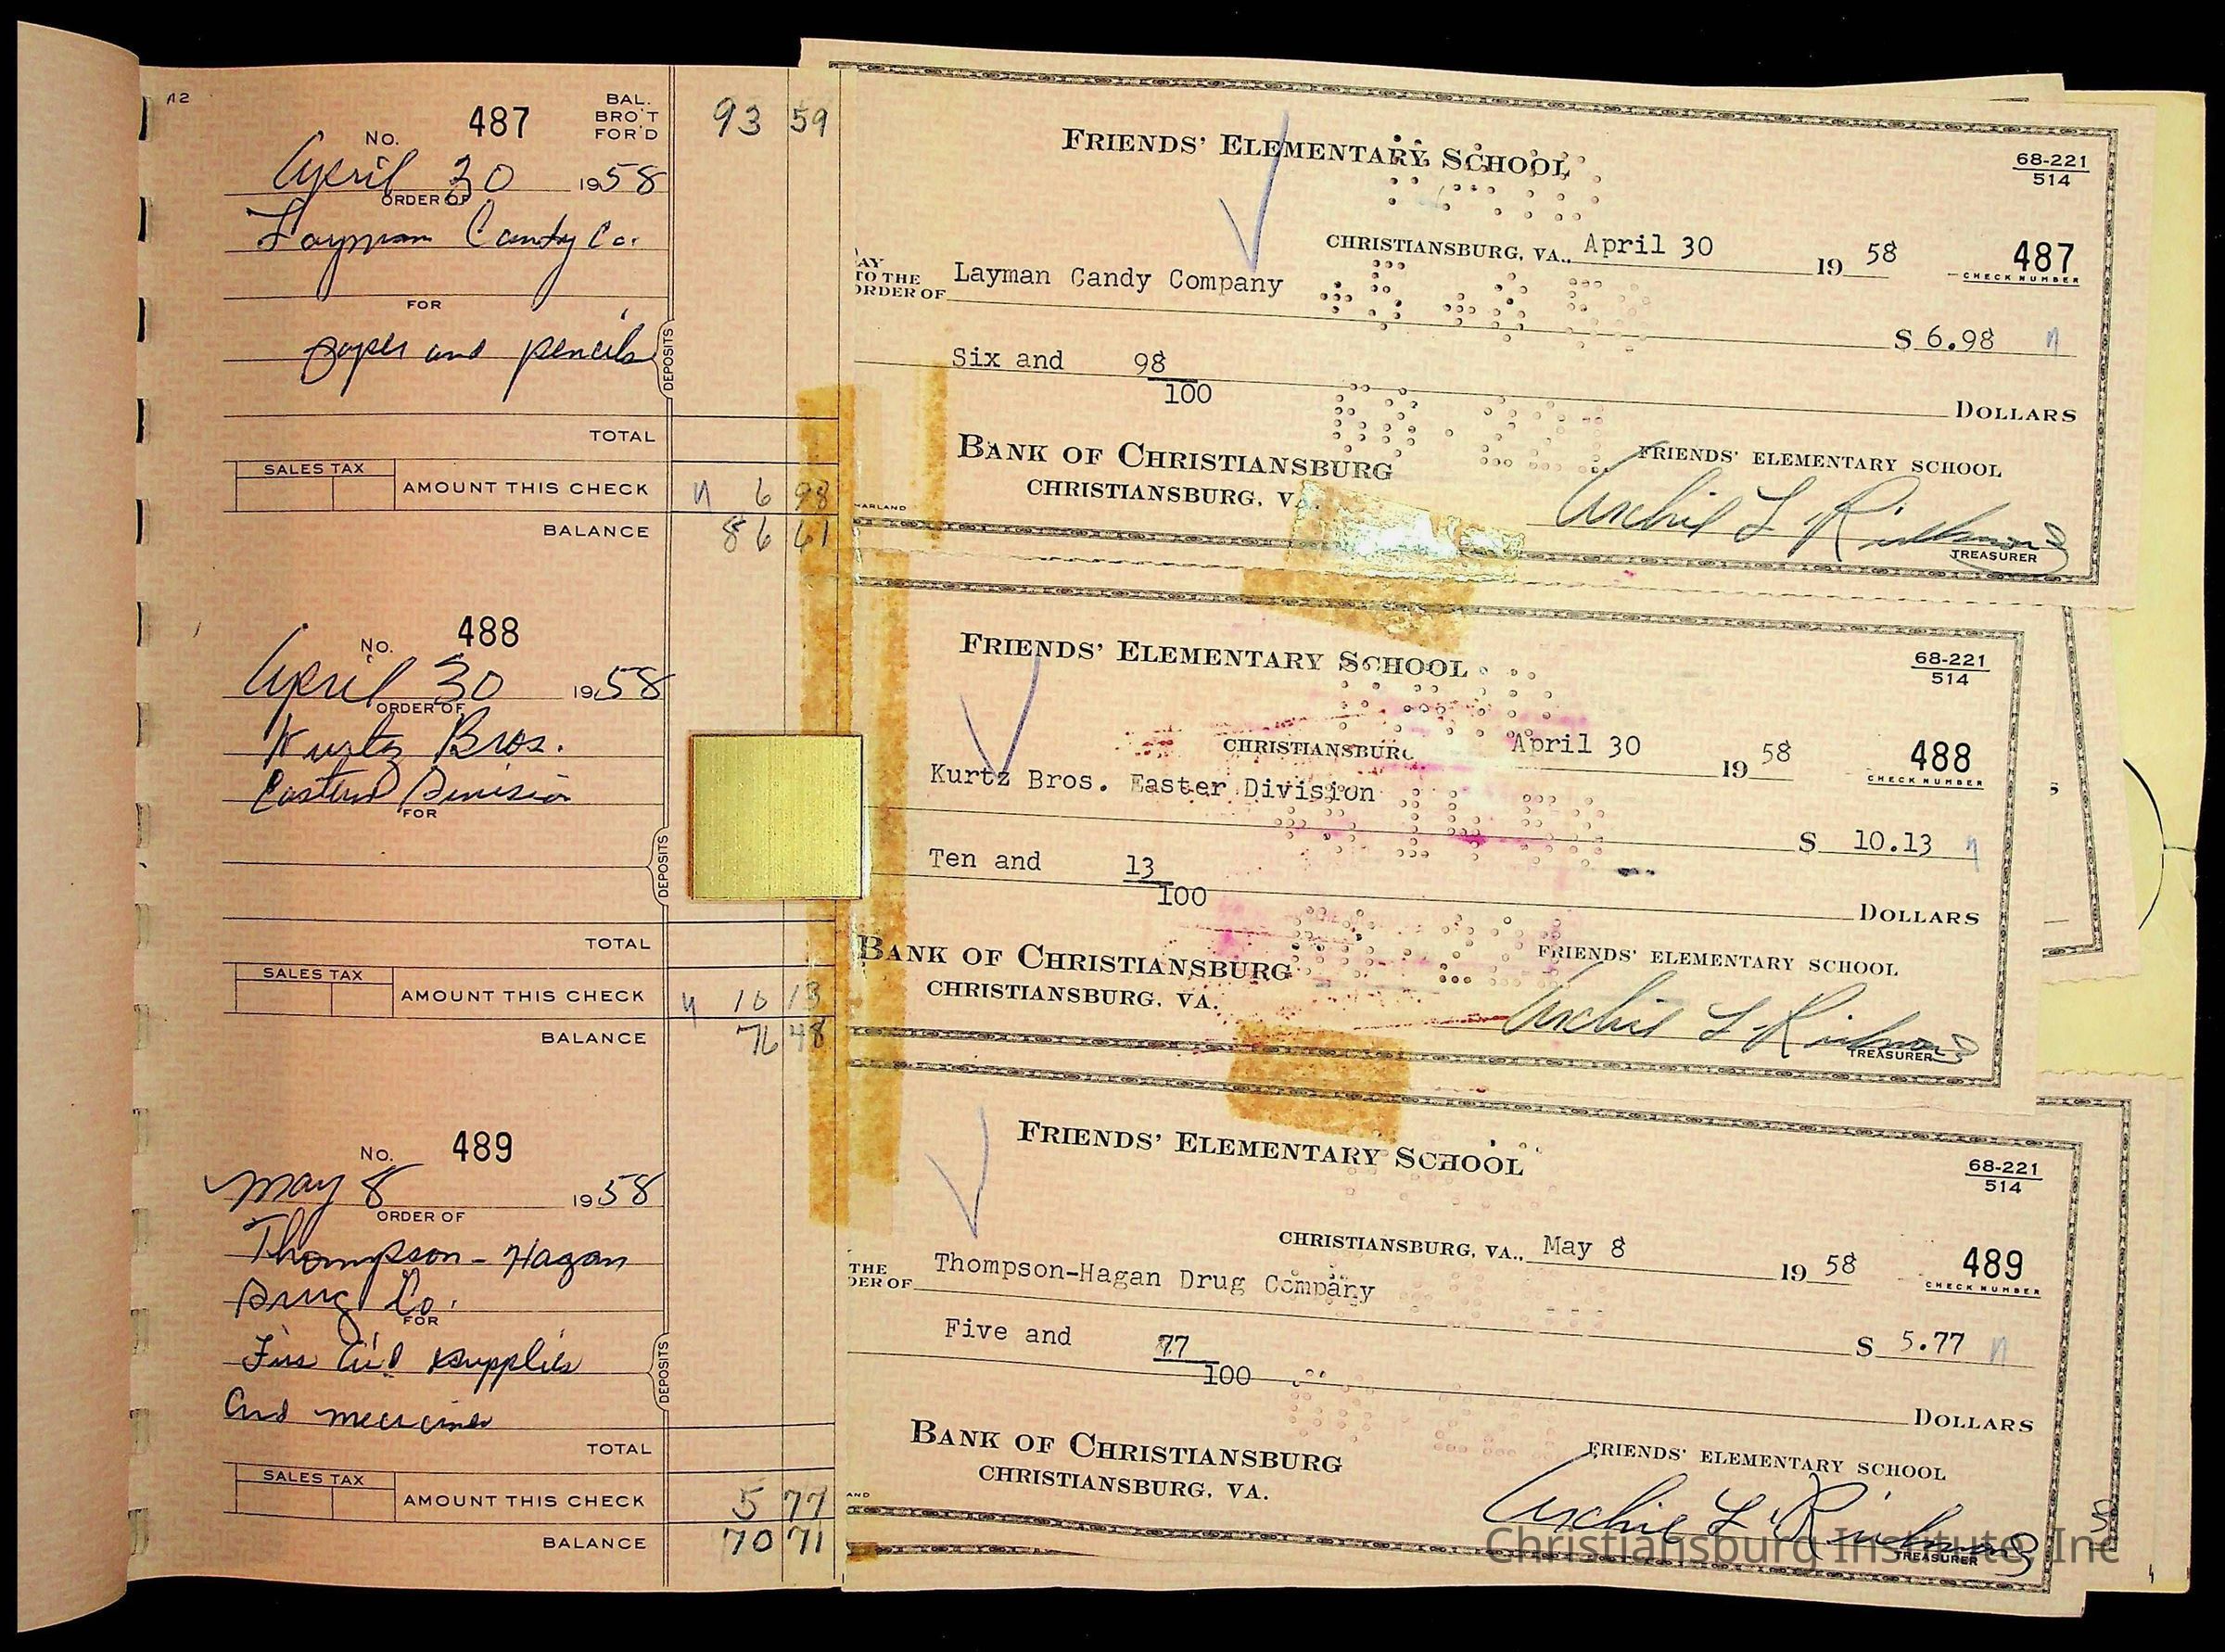 No. 487
BAL. BRO'T FOR'D 93 59
April 30 1958
ORDER OF
Layman Candy Co.
FOR
paper and pencils
DEPOSITS
TOTAL
SALES TAX
AMOUNT THIS CHECK 6 98
BALANCE 86 61
No. 488
April 30 1958
ORDER OF
Kurtz Bros.
Eastern Division
FOR
DEPOSITS
TOTAL
SALES TAX
AMOUNT THIS CHECK 10 13
BALANCE 76 48
No. 489
May 8 1958
ORDER OF
Thompson-Hagan
Drug Co.
FOR
Firs Aid supplies
and medicines
DEPOSITS
TOTAL
SALES TAX
AMOUNT THIS CHECK 5 77
BALANCE 70 71
FRIENDS' ELEMENTARY SCHOOL
68-221
514
CHRISTIANSBURG, VA., April 30 19 58
487
CHECK NUMBER
TO THE
ORDER OF Layman Candy Company
$ 6.98
Six and 98
100
DOLLARS
BANK OF CHRISTIANSBURG
CHRISTIANSBURG, VA.
FRIENDS' ELEMENTARY SCHOOL
Archie L Richmond
TREASURER
FRIENDS' ELEMENTARY SCHOOL
68-221
514
CHRISTIANSBURG April 30 19 58
488
CHECK NUMBER
Kurtz Bros. Easter Division
$ 10.13
Ten and 13
100
DOLLARS
BANK OF CHRISTIANSBURG
CHRISTIANSBURG, VA.
FRIENDS' ELEMENTARY SCHOOL
Archie L Richmond
TREASURER
FRIENDS' ELEMENTARY SCHOOL
68-221
514
CHRISTIANSBURG, VA., May 8 19 58
489
CHECK NUMBER
THE
DER OF Thompson-Hagan Drug Company
$ 5.77
Five and 77
100
DOLLARS
BANK OF CHRISTIANSBURG
CHRISTIANSBURG, VA.
FRIENDS' ELEMENTARY SCHOOL
Archie L Richmond
TREASURER
Christiansburg Institute, Inc